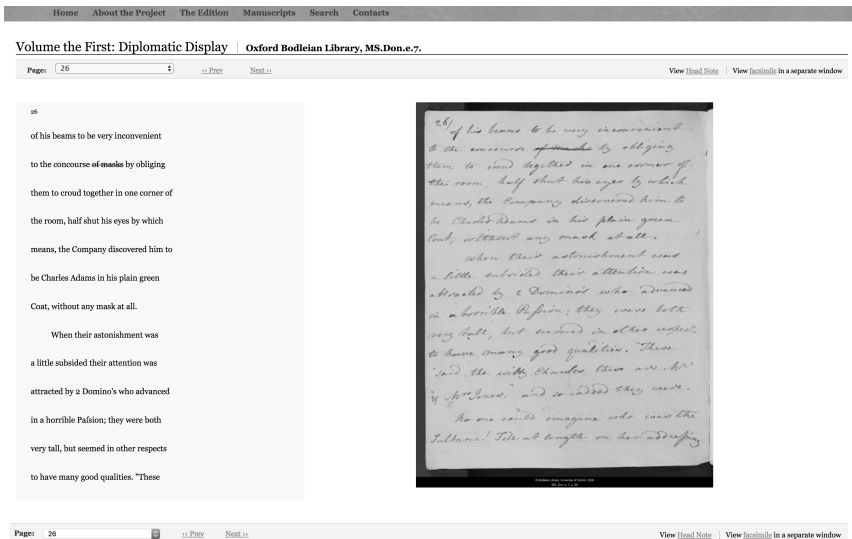 Home About the Project The Edition Manuscripts Search Contacts
Volume the First: Diplomatic Display | Oxford Bodleian Library, MS.Don.e.7.
Page: 26 ‹‹ Prev Next ›› View Head Note | View facsimile in a separate window
26
of his beams to be very inconvenient
to the concourse of masks by obliging
them to croud together in one corner of
the room, half shut his eyes by which
means, the Company discovered him to
be Charles Adams in his plain green
Coat, without any mask at all.
When their astonishment was
a little subsided their attention was
attracted by 2 Domino's who advanced
in a horrible Paſsion; they were both
very tall, but seemed in other respects
to have many good qualities. "These
26/
of his beams to be very inconvenient
to the concourse of masks by obliging
them to croud together in one corner of
the room, half shut his eyes by which
means, the Company discovered him to
be Charles Adams in his plain green
Coat, without any mask at all.
When their astonishment was
a little subsided their attention was
attracted by 2 Domino's who advanced
in a horrible Paſsion; they were both
very tall, but seemed in other respects
to have many good qualities. "These
"said the witty Charles, these are Mr
"& Mrs Jones." and so indeed they were.
No one could imagine who was the
Sultana! Till at length on her addreſsing
©Bodleian Library, University of Oxford, 2009
MS. Don. e. 7, p. 26
Page: 26 ‹‹ Prev Next ›› View Head Note | View facsimile in a separate window